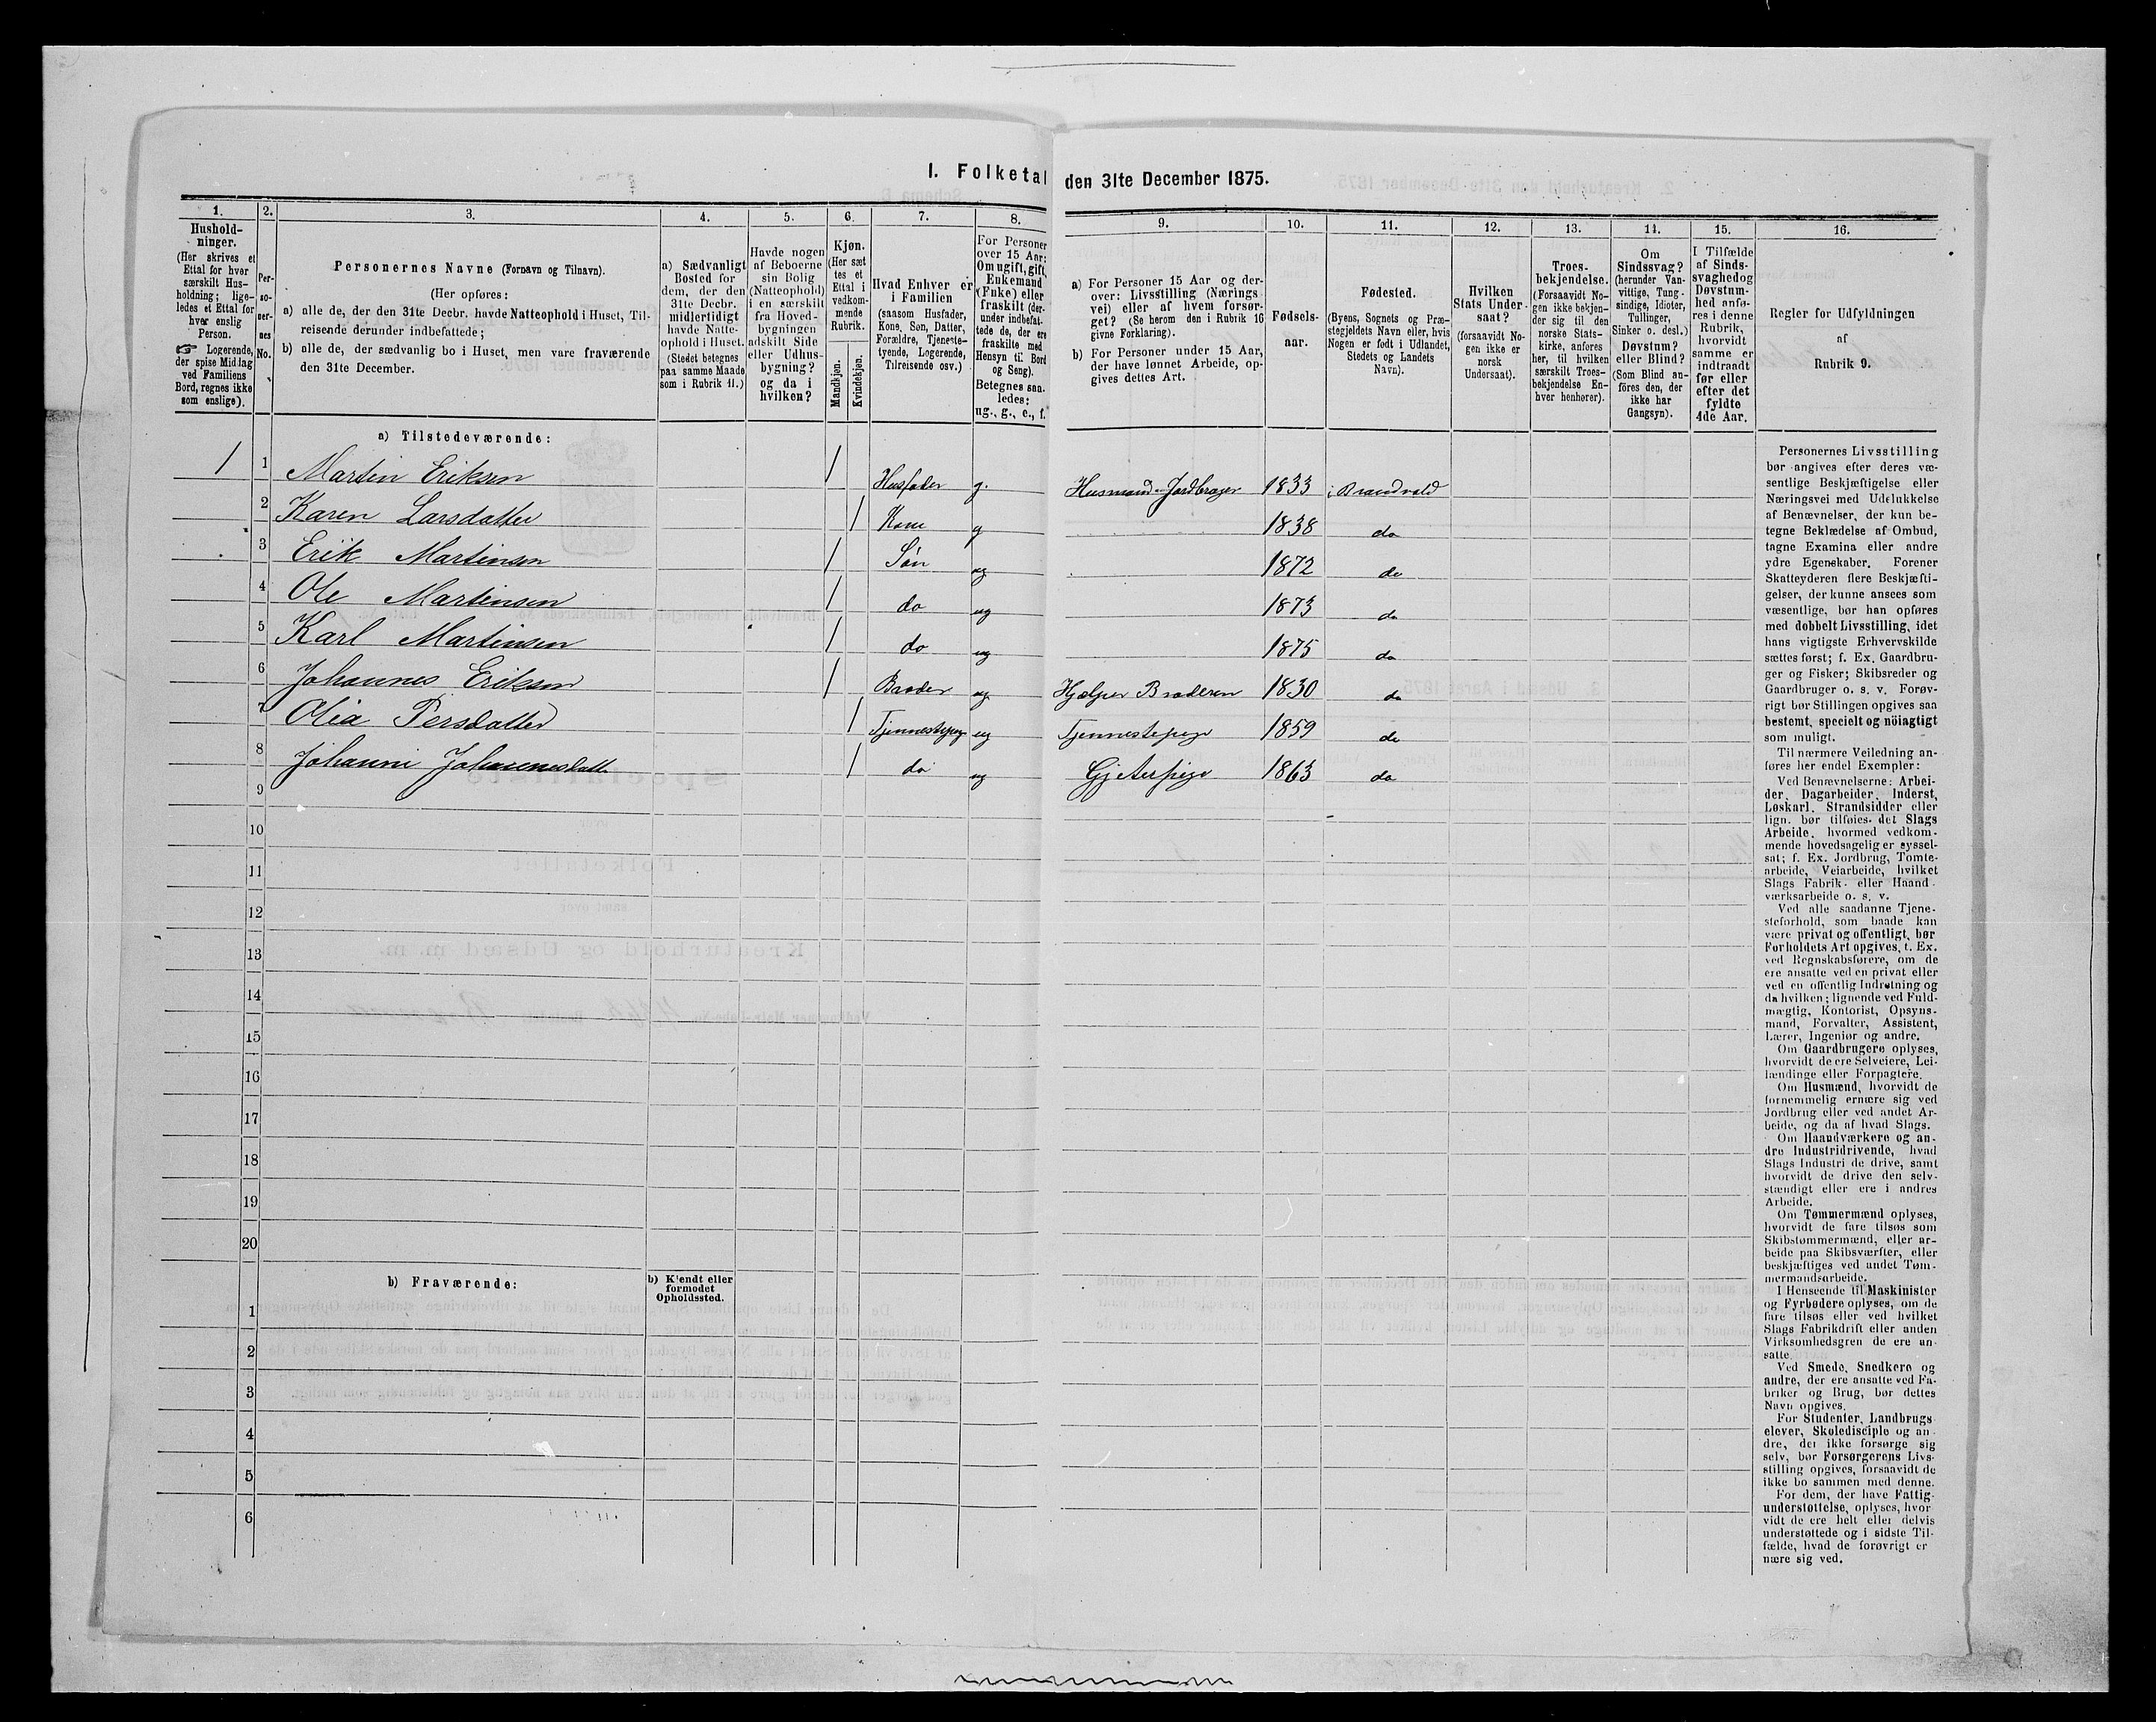 I. Folketal den 31te December 1875.
1. 2. 3. 4. 5. 6. 7. 8. 9. 10. 11. 12. 13. 14. 15. 16.
Hushold-
ninger.
(Her skrives et
Ettal for hver
særskilt Hus-
holdning; lige-
ledes et Ettal for
hver enslig
Person.
☞ Logerende,
der spise Middag
ved Familiens
Bord, regnes ikke
som enslige).
Per-
so-
ner-
nes
No.
Personernes Navne (Fornavn og Tilnavn).
(Her opføres:
a) alle de, der den 31te Decbr. havde Natteophold i Huset, Til-
reisende derunder indbefattede;
b) alle de, der sædvanlig bo i Huset, men vare fraværende
den 31te December.
a) Sædvanligt
Bosted for
dem, der den
31te Decbr.
midlertidigt
havde Natte-
ophold i Huset.
(Stedet betegnes
paa samme Maade
som i Rubrik 11.)
Havde nogen
af Beboerne
sin Bolig
(Natteophold)
i en særskilt
fra Hoved-
bygningen
adskilt Side
eller Udhus-
bygning?
og da i
hvilken?
Kjøn.
(Her sæt
tes et
Ettal i
vedkom-
mende
Rubrik.
Mandkjøn.
Kvindekjøn.
Hvad Enhver er
i Familien
(saasom Husfader,
Kone, Søn, Datter,
Forældre, Tjeneste-
tyende, Logerende,
Tilreisende osv.)
For Personer
over 15 Aar:
Om ugift, gift,
Enkemand
(Enke) eller
fraskilt (der-
under indbefat-
tede de, der ere
fraskilte med
Hensyn til Bord
og Seng).
Betegnes saa-
ledes:
ug., g., e., f.
a) For Personer 15 Aar og der-
over: Livsstilling (Nærings
vei) eller af hvem forsør-
get? (Se herom den i Rubrik 16
givne Forklaring).
b) For Personer under 15 Aar,
der have lønnet Arbeide, op-
gives dettes Art.
Fødsels-
aar.
Fødested.
(Byens, Sognets og Præ-
stegjeldets Navn eller, hvis
Nogen er født i Udlandet,
Stedets og Landets
Navn).
Hvilken
Stats Under-
saat?
(forsaavidt No-
gen ikke er
norsk
Undersaat).
Troes-
bekjendelse.
(Forsaavidt No-
gen ikke bekjen-
der sig til den
norske Stats-
kirke, anføres
her, til hvilken
særskilt Troes-
bekjendelse En-
hver henhører).
Om
Sindssvag?
(herunder Van-
vittige, Tung-
sindige, Idioter,
Tullinger,
Sinker o. desl.)
Døvstum?
eller Blind?
(Som Blind an-
føres den, der
ikke har
Gangsyn).
I Tilfælde
af Sinds-
svaghed og
Døvstum-
hed anfø-
res i denne
Rubrik,
hvorvidt
samme er
indtraadt
før eller
efter det
fyldte
4de Aar.
Regler for Udfyldningen
af
Rubrik 9.
a) Tilstedeværende:
1 1 Martin Eriksen 1 Husfader g. Husmand Jordbruger 1833 i Brandvold
2 Karen Larsdatter 1 Kone g 1838 do
3 Erik Martinsen 1 Søn ug 1872 do
4 Ole Martinsen 1 do ug 1873 do
5 Karl Martinsen 1 do ug 1875 do
6 Johannes Eriksen 1 Broder ug Hjælper Broderen 1830 do
7 Olia Persdatter 1 Tjennestepige ug Tjennestepige 1859 do
8 Johanni Johannesdatter 1 do ug Gjeterpige 1863 do
9
10
11
12
13
14
15
16
17
18
19
20
b) Fraværende:
b) Kjendt eller
formodet
Opholdssted.
1
2
3
4
5
6
Personernes Livsstilling
bør angives efter deres væ-
sentlige Beskjæftigelse eller
Næringsvei med Udelukkelse
af Benævnelser, der kun be-
tegne Beklædelse af Ombud,
tagne Examina eller andre
ydre Egenskaber. Forener
Skatteyderen flere Beskjæfti-
gelser, der kunne ansees som
væsentlige, bør han opføres
med dobbelt Livsstilling, idet
hans vigtigste Erhvervskilde
sættes først; f. Ex. Gaardbru-
ger og Fisker; Skibsreder og
Gaardbruger o. s. v. Forøv-
rigt bør Stillingen opgives saa
bestemt, specielt og nöiagtigt
som muligt.
Til nærmere Veiledning an-
føres her endel Exempler:
Ved Benævnelserne: Arbei-
der, Dagarbeider, Inderst,
Løskarl, Strandsidder eller
lign. bør tilføies det Slags
Arbeide, hvormed vedkom-
mende hovedsagelig er syssel-
sat; f. Ex. Jordbrug, Tomte-
arbeide, Veiarbeide, hvilket
Slags Fabrik- eller Haand-
værksarbeide o. s. v.
Ved alle saadanne Tjene-
steforhold, som baade kan
være privat og offentligt, bør
Forholdets Art opgives, f. Ex.
ved Regnskabsførere, om de
ere ansatte ved en privat eller
ved en offentlig Indretning og
da hvilken; lignende ved Fuld-
mægtig, Kontorist, Opsyns-
mand, Forvalter, Assistent,
Lærer, Ingeniør og andre.
Om Gaardbrugere oplyses,
hvorvidt de ere Selveiere, Lei-
lændinge eller Forpagtere.
Om Husmænd, hvorvidt de
fornemmelig ernære sig ved
Jordbrug eller ved andet Ar-
beide, og da af hvad Slags.
Om Haandværkere og an-
dre Industridrivende, hvad
Slags Industri de drive, samt
hvorvidt de drive den selv-
stændigt eller ere i andres
Arbeide.
Om Tømmermænd oplyses,
hvorvidt de fare tilsøs som
Skibstømmermænd, eller ar-
beide paa Skibsværfter, eller
beskjæftiges ved andet Tøm-
mermandsarbeide.
I Henseende til Maskinister
og Fyrbødere oplyses, om de
fare tilsøs eller ved hvilket
Slags Fabrikdrift eller anden
Virksomhedsgren de ere an-
satte
Ved Smede, Snedkere og
andre, der ere ansatte ved Fa-
briker og Brug, bør dettes
Navn opgives.
For Studenter, Landbrugs
elever, Skoledisciple og an-
dre, der ikke forsørge sig
selv, bør Forsørgerens Livs-
stilling opgives, forsaavidt de
ikke bo sammen med denne.
For dem, der have Fattig-
understøttelse, oplyses, hvor-
vidt de ere helt eller delvis
understøttede og i sidste Til-
fælde, hvad de forøvrigt er
nære sig ved.